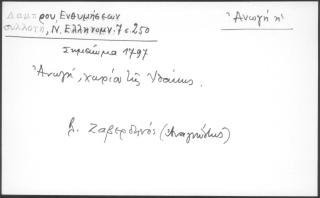 Λάμπρου, Ενθυμήσεων
συλλογή, Ν. Ελληνομν. 7 σ. 250
Ἀνωγή ἡ
Σημείωμα 1797
Ἀνωγή, χωρίον τῆς Ἰθάκης.
β. Ζαβερδινός (Ἀναγνώστης)